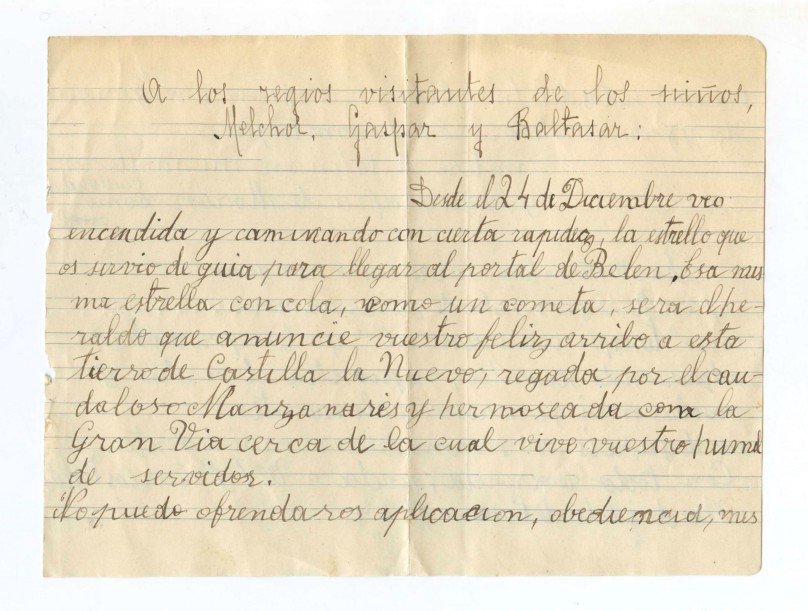 A los regios visitantes de los niños,
Melchor, Gaspar y Baltasar:
Desde el 24 de Diciembre veo
encendida y caminando con cierta rapidez, la estrello que
os servio de guia para llegar al portal de Belen. Esa mis
ma estrella con cola, como un cometa, sera el he-
raldo que anuncie vuestro feliz arribo a esta
tierro de Castilla la Nuevo, regada por el cau-
daloso Manzanares y hermoseada con la
Gran Via cerca de la cual vivo vuestro humil
de servidor.
No puedo ofrendaros aplicacion, obediencia, mis